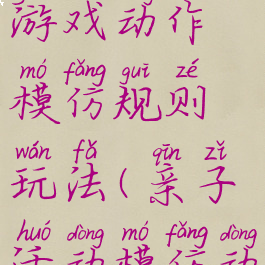 游戏动作
mó fǎng guī zé
模仿规则
wán fǎ qīn zǐ
玩法(亲子
huó dòng mó fǎng dòng
活动模仿动